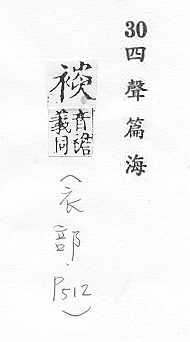 30四聲篇海
裧
音
義同
(衣部.P512)